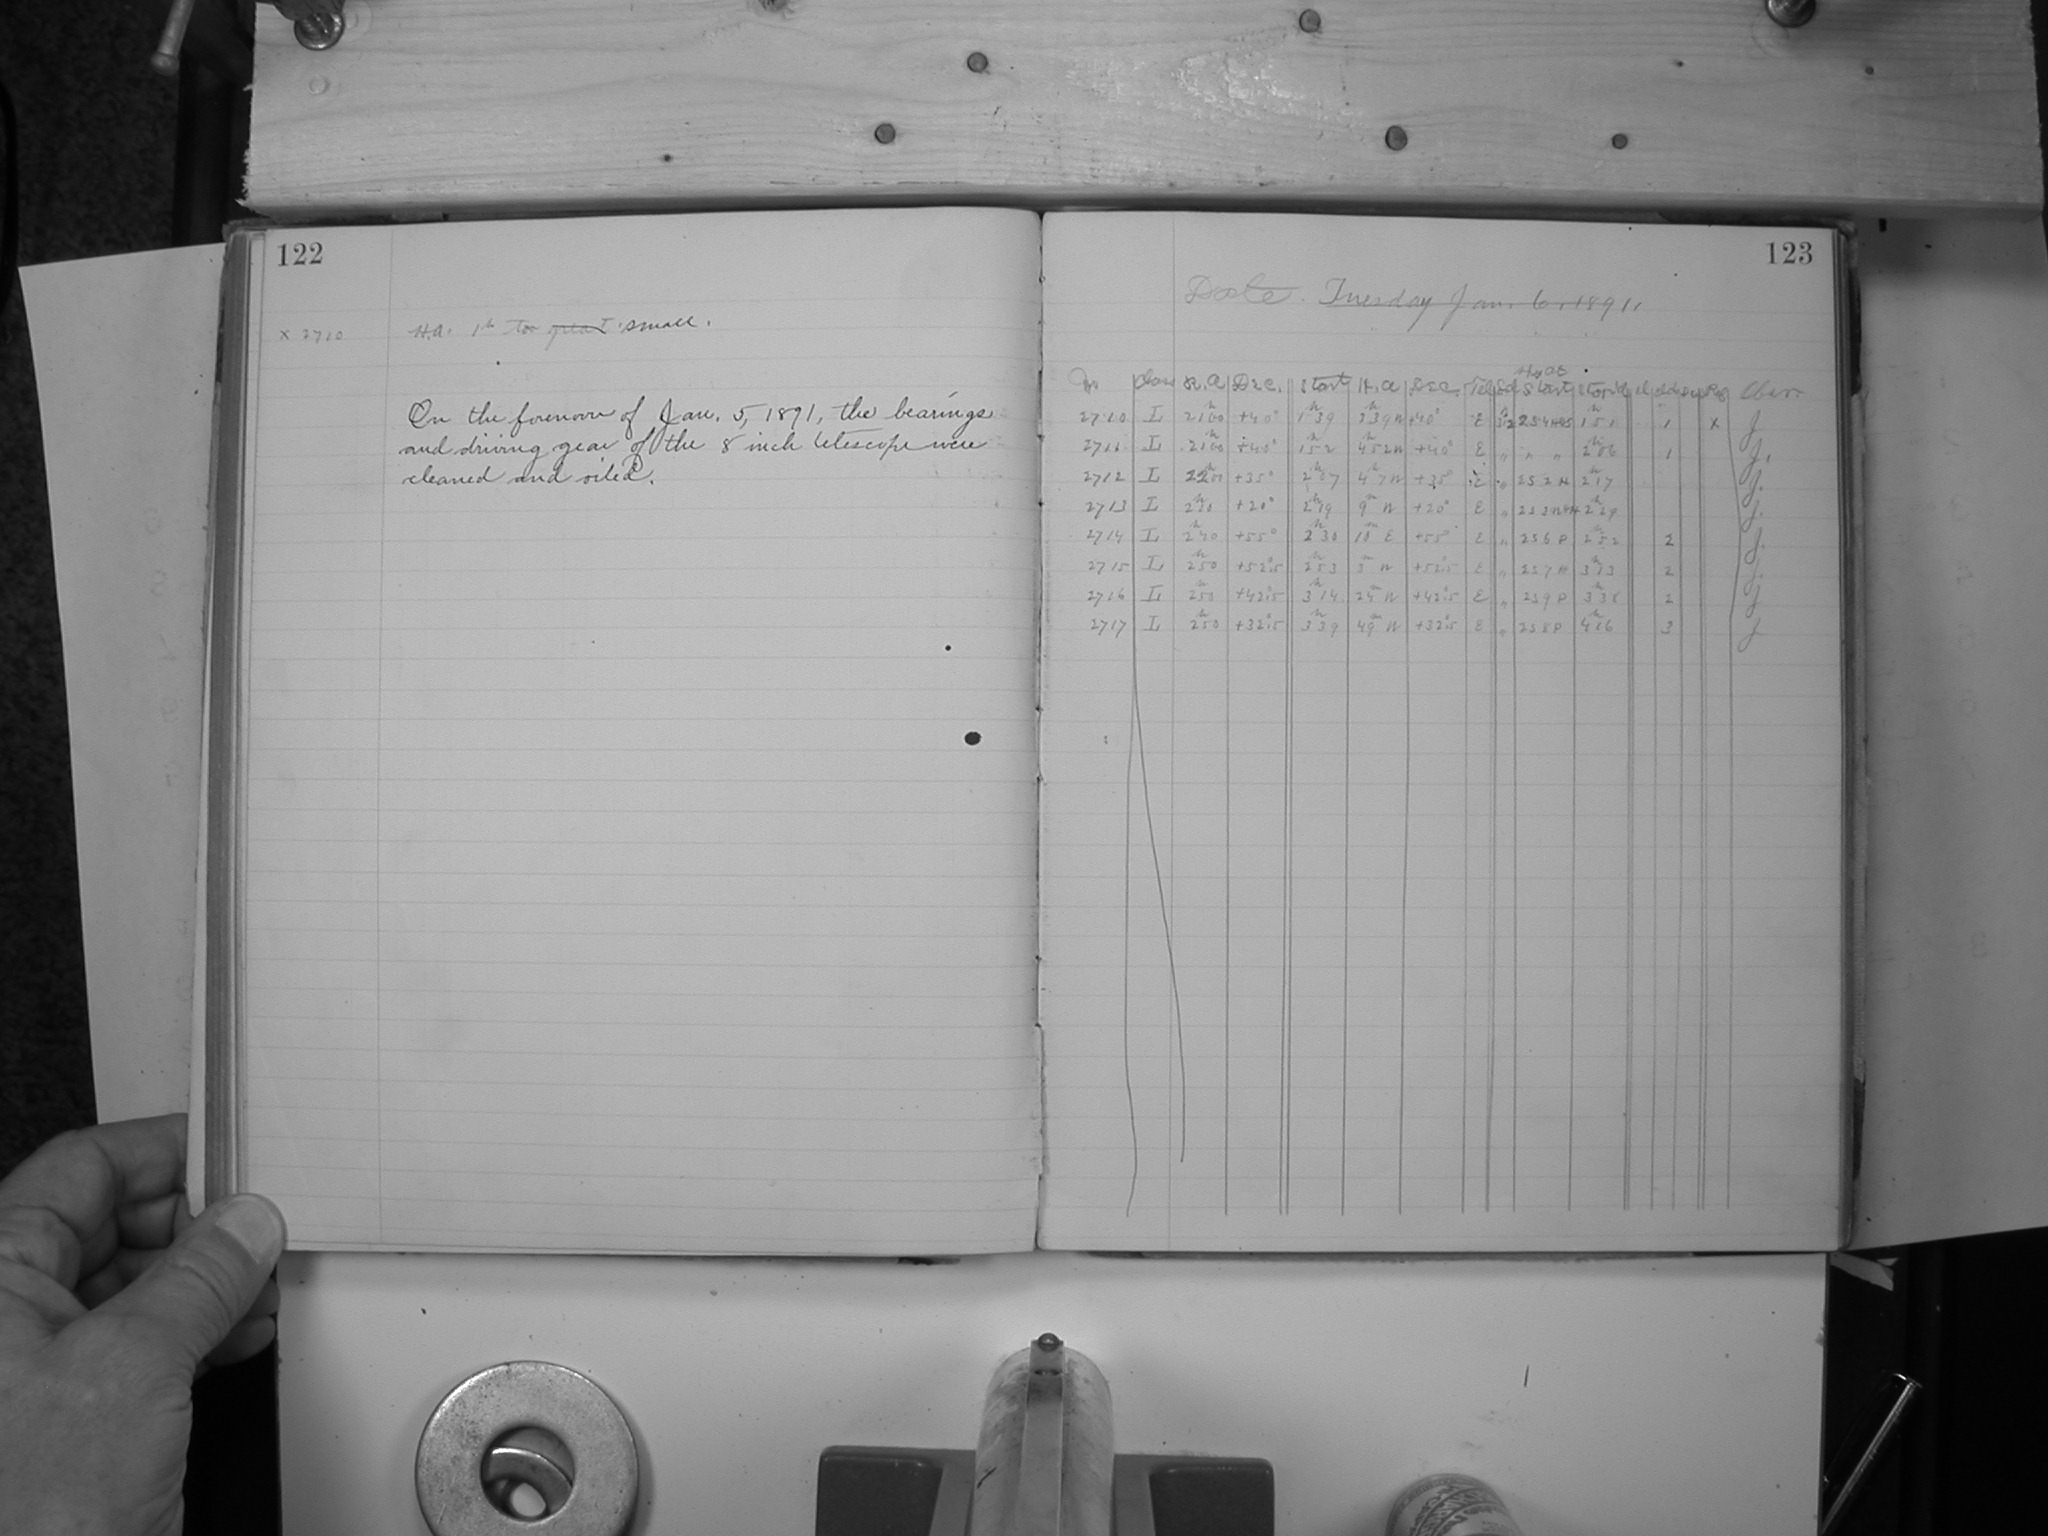 122
x 2710 H.A. 1h too great small.
On the forenoon of Jan. 5, 1891, the bearings
and driving gear of the 8 inch telescope were
cleaned and oiled.
123
Date. Tuesday Jan. 6, 1891.
No. Class R.A Dec. Start H.A Dec. Tel Start Stop'd Obser
2710 L 2h00 +40° 1h39 3h39W +40° E 1h51 1 x J
2711 L 2h00 +40° 1h52 +40° E " " " 2h06 1 J.
2712 L +35° 2h07 +35° E " 252 H 2h17 J.
2713 L 2h10 +20° 2h19 9m W +20° E " 2h29 J.
2714 L 2h40 +55° 2h30 10m E +55° E " 256 P 2h52 2 J.
2715 L 2h50 +52°.5 2h53 3m W +52°.5 E " 257 H 3h13 2 J.
2716 L 2h50 +42°.5 3h14 24m W +42°.5 E " 259 P 3h38 2 J
2717 L 2h50 +32°.5 3h39 49m W +32°.5 E " 258 P 4h16 3 J